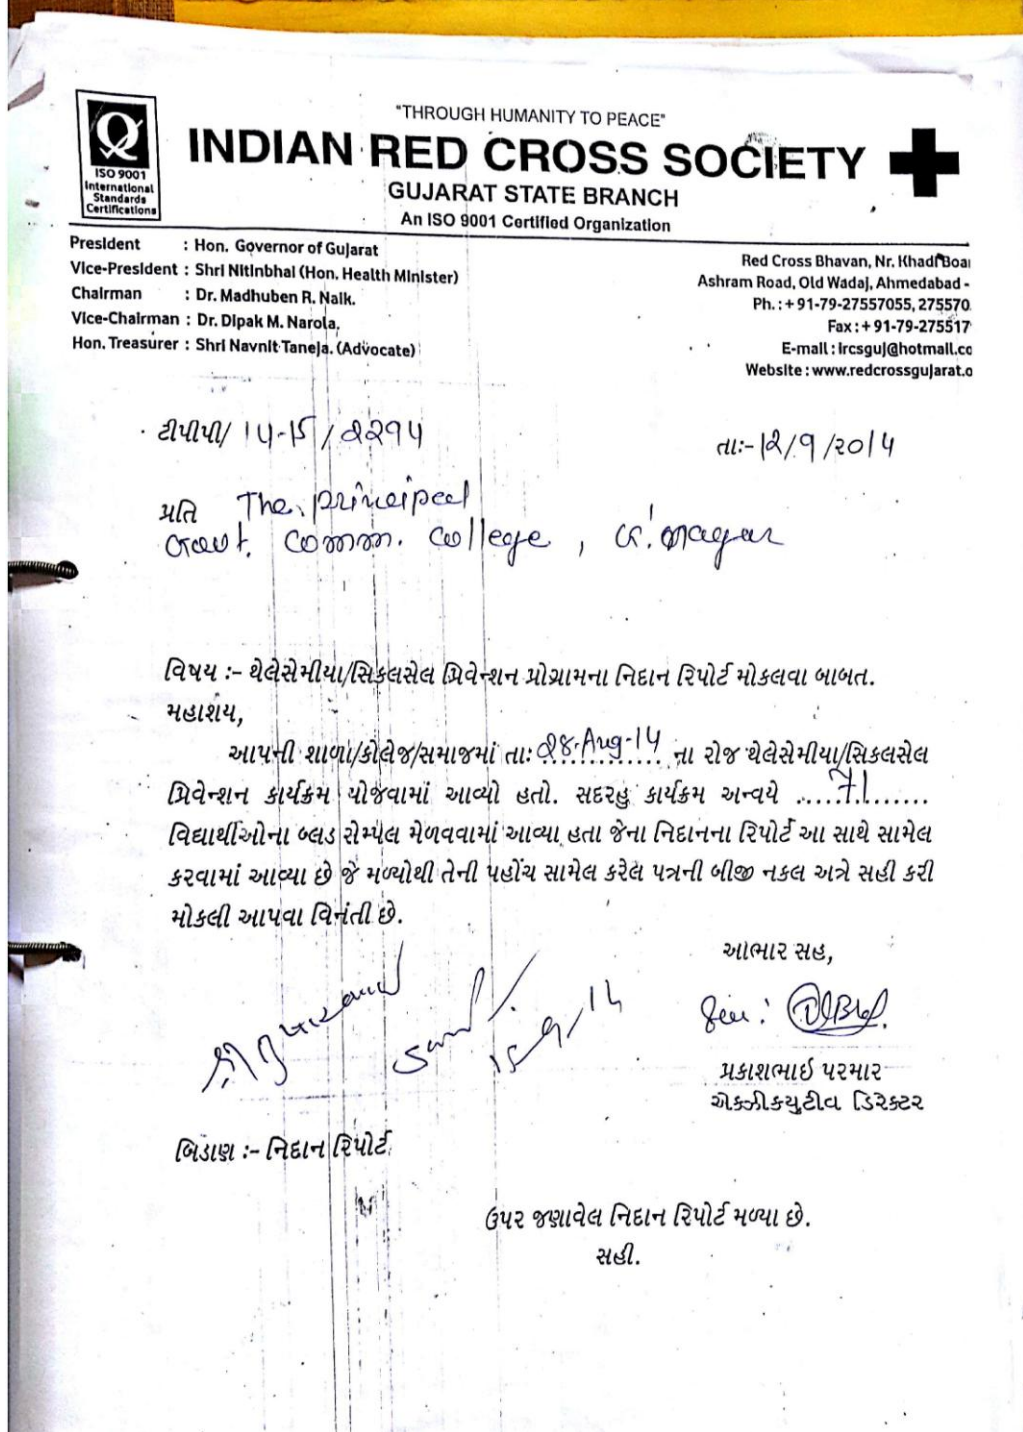 "THROUGH HUMANITY TO PEACE"
INDIAN RED CROSS SOCIETY
GUJARAT STATE BRANCH
An ISO 9001 Certified Organization
Q
ISO 9001
International
Standards
Certifications
President : Hon. Governor of Gujarat
Vice-President : Shri Nitinbhai (Hon. Health Minister)
Chairman : Dr. Madhuben R. Naik.
Vice-Chairman : Dr. Dipak M. Narola.
Hon. Treasurer : Shri Navnit Taneja. (Advocate)
Red Cross Bhavan, Nr. Khadi Boar
Ashram Road, Old Wadaj, Ahmedabad -
Ph. : + 91-79-27557055, 275570
Fax : + 91-79-275517
E-mail : ircsguj@hotmail.co
Website : www.redcrossgujarat.o
ટીપીપી/ 14-15/2294
તાઃ- 12/9/2014
પ્રતિ The principal
Govt. Comm. College, G'nagar
વિષય :- થેલેસેમીયા/સિકલસેલ પ્રિવેન્શન પ્રોગ્રામના નિદાન રિપોર્ટ મોકલવા બાબત.
મહાશય,
આપની શાળા/કોલેજ/સમાજમાં તાઃ 28-Aug-14 ના રોજ થેલેસેમીયા/સિકલસેલ
પ્રિવેન્શન કાર્યક્રમ યોજવામાં આવ્યો હતો. સદરહુ કાર્યક્રમ અન્વયે .....71.......
વિદ્યાર્થીઓના બ્લડ સેમ્પલ મેળવવામાં આવ્યા હતા જેના નિદાનના રિપોર્ટ આ સાથે સામેલ
કરવામાં આવ્યા છે જે મળ્યેથી તેની પહોંચ સામેલ કરેલ પત્રની બીજી નકલ અત્રે સહી કરી
મોકલી આપવા વિનંતી છે.
આભાર સહ,
15/9/14
પ્રકાશભાઈ પરમાર
એકઝીકયુટીવ ડિરેક્ટર
બિડાણ :- નિદાન રિપોર્ટ
ઉપર જણાવેલ નિદાન રિપોર્ટ મળ્યા છે.
સહી.